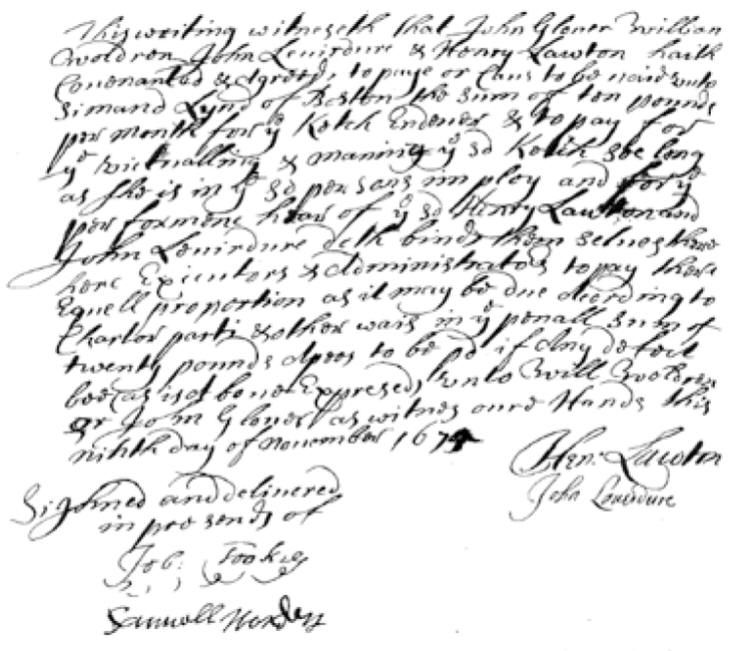 This writing witneseth that John Glover William
Woldren John Levirdure & Henry Lawton hath
Covenanted & Agreed, to paye or Caus to be paid unto
Simand Lynd of Boston the sum of ten pounds
per month for ye Ketch Endever & to pay for
ye victualling & maning ye sd Ketch soe long
as she is in ye sd persons imploy and for ye
performenc hear of ye sd Henry Lawton and
John Levirdure doth binds them selves there
here Executors & Administrators to pay there
Equell proportion as it may be due Acording to
Charter parti & other wais in ye penall sum of
twenty pounds Apees to be pd if Any defeit
bee as is above Expresed unto Will Woldren
or John Glover as witnes oure Hands this
ninth day of November 1674
Hen: Lawton
John Levirdure
Sighned and delivered
in presends of
Job: Tookie
Samuell Worden